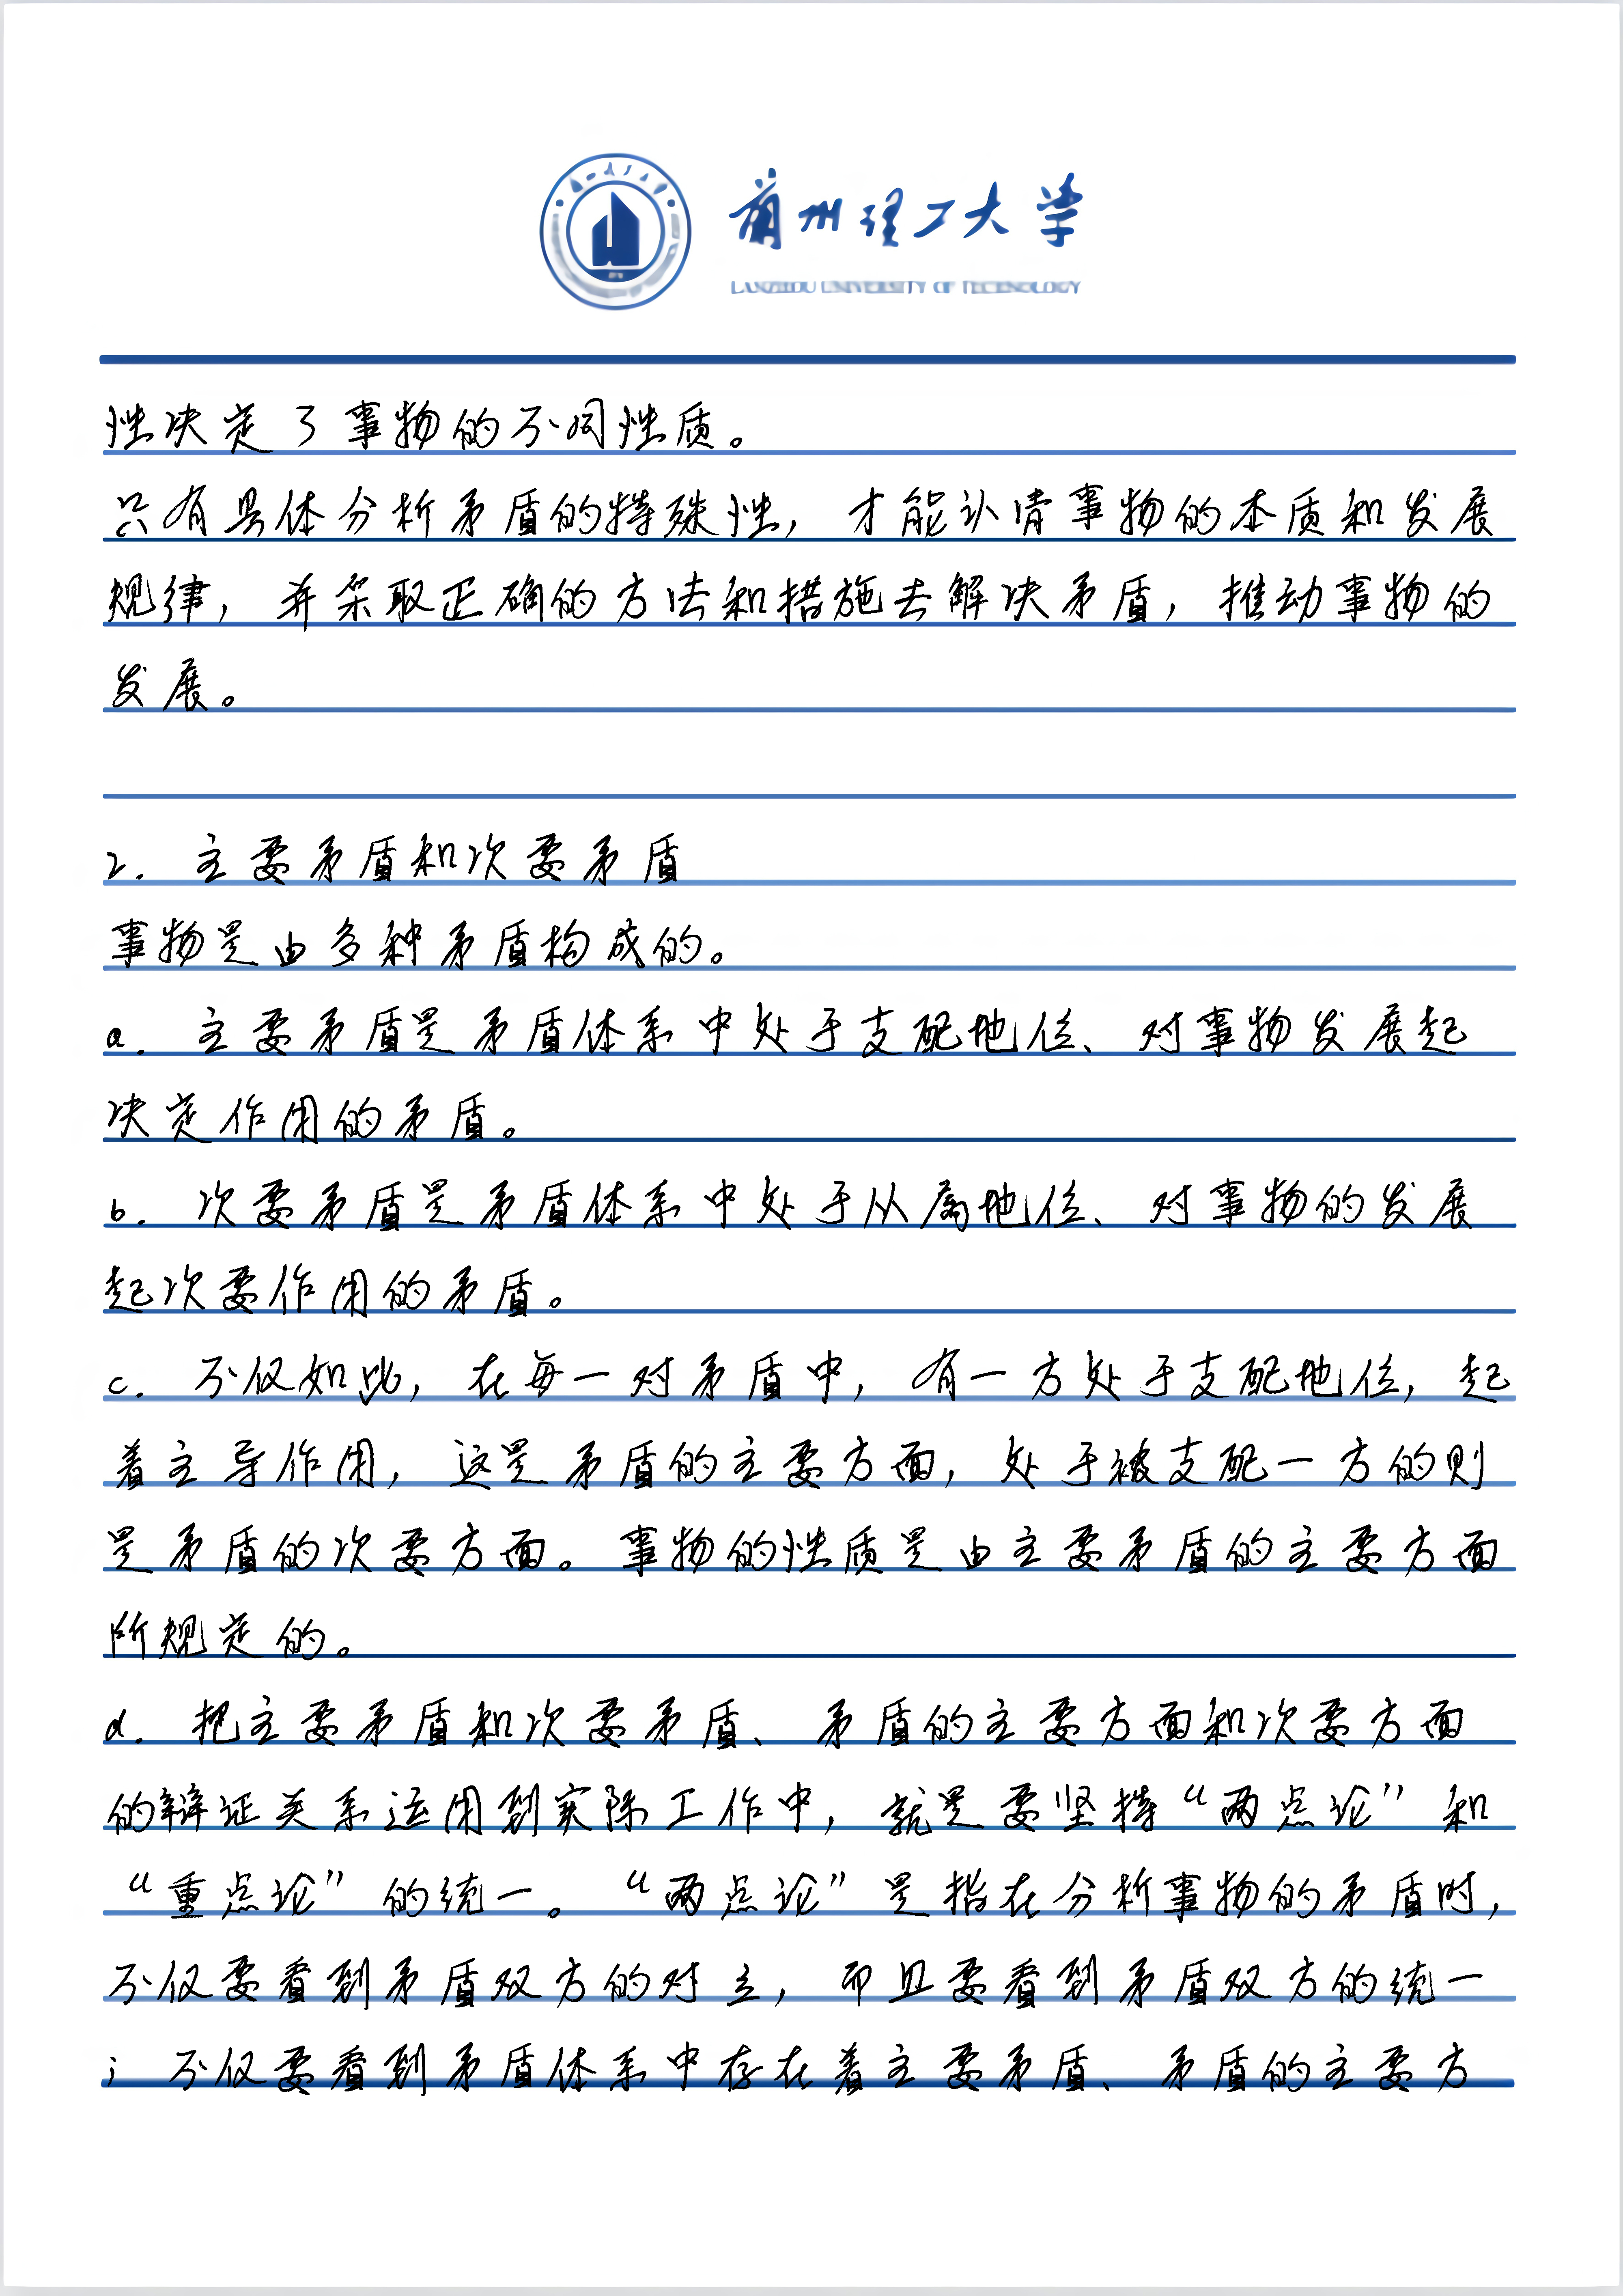 兰州理工大学
LANZHOU UNIVERSITY OF TECHNOLOGY
性决定了事物的不同性质。
只有具体分析矛盾的特殊性，才能认清事物的本质和发展
规律，并采取正确的方法和措施去解决矛盾，推动事物的
发展。
2. 主要矛盾和次要矛盾
事物是由多种矛盾构成的。
a. 主要矛盾是矛盾体系中处于支配地位、对事物发展起
决定作用的矛盾。
b. 次要矛盾是矛盾体系中处于从属地位、对事物的发展
起次要作用的矛盾。
c. 不仅如此，在每一对矛盾中，有一方处于支配地位，起
着主导作用，这是矛盾的主要方面，处于被支配一方的则
是矛盾的次要方面。事物的性质是由主要矛盾的主要方面
所规定的。
d. 把主要矛盾和次要矛盾、矛盾的主要方面和次要方面
的辩证关系运用到实际工作中，就是要坚持“两点论”和
“重点论”的统一。“两点论”是指在分析事物的矛盾时，
不仅要看到矛盾双方的对立，而且要看到矛盾双方的统一
；不仅要看到矛盾体系中存在着主要矛盾、矛盾的主要方